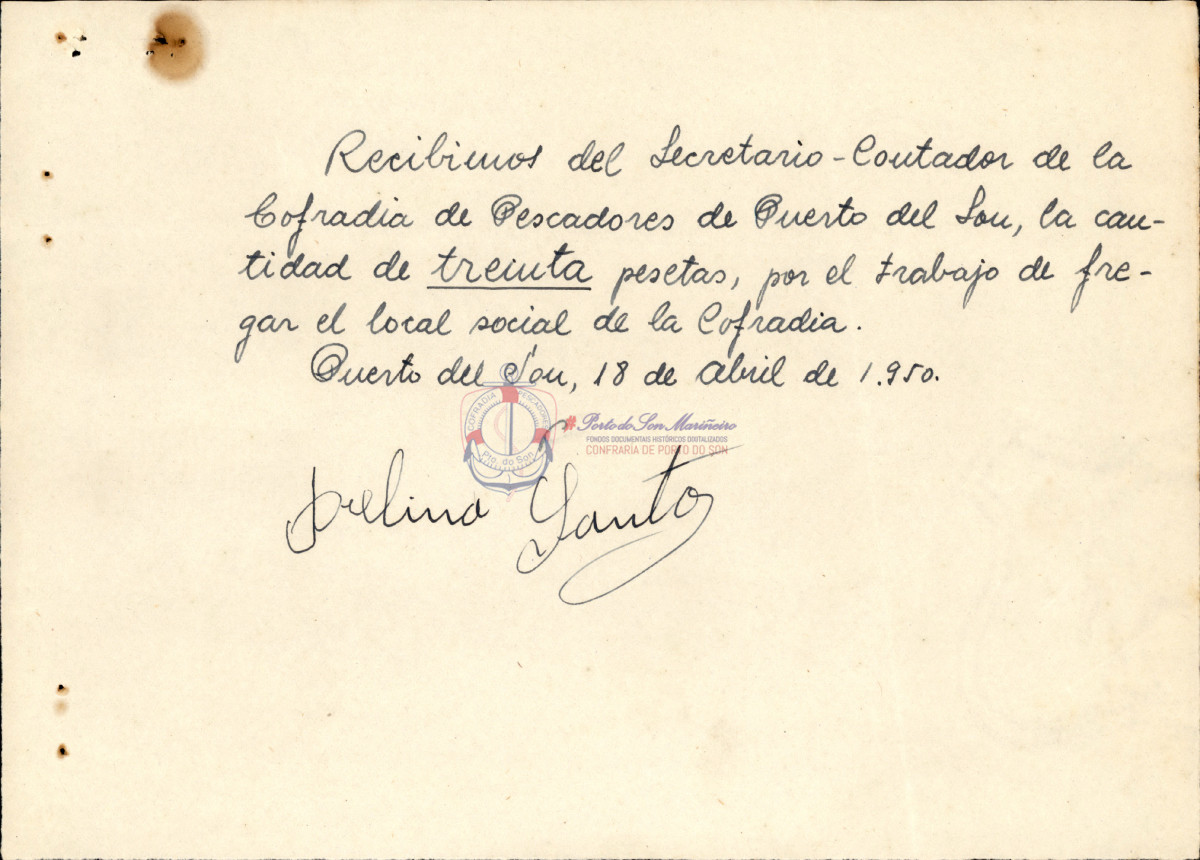 Recibimos del Secretario-Contador de la
Cofradia de Pescadores de Puerto del Son, la can-
tidad de treinta pesetas, por el trabajo de fre-
gar el local social de la Cofradia.
Puerto del Son, 18 de abril de 1.950.
COFRADIA PESCADORES
Pto. do Son
#Porto do Son Mariñeiro
FONDOS DOCUMENTAIS HISTÓRICOS DIXITALIZADOS
CONFRARÍA DE PORTO DO SON